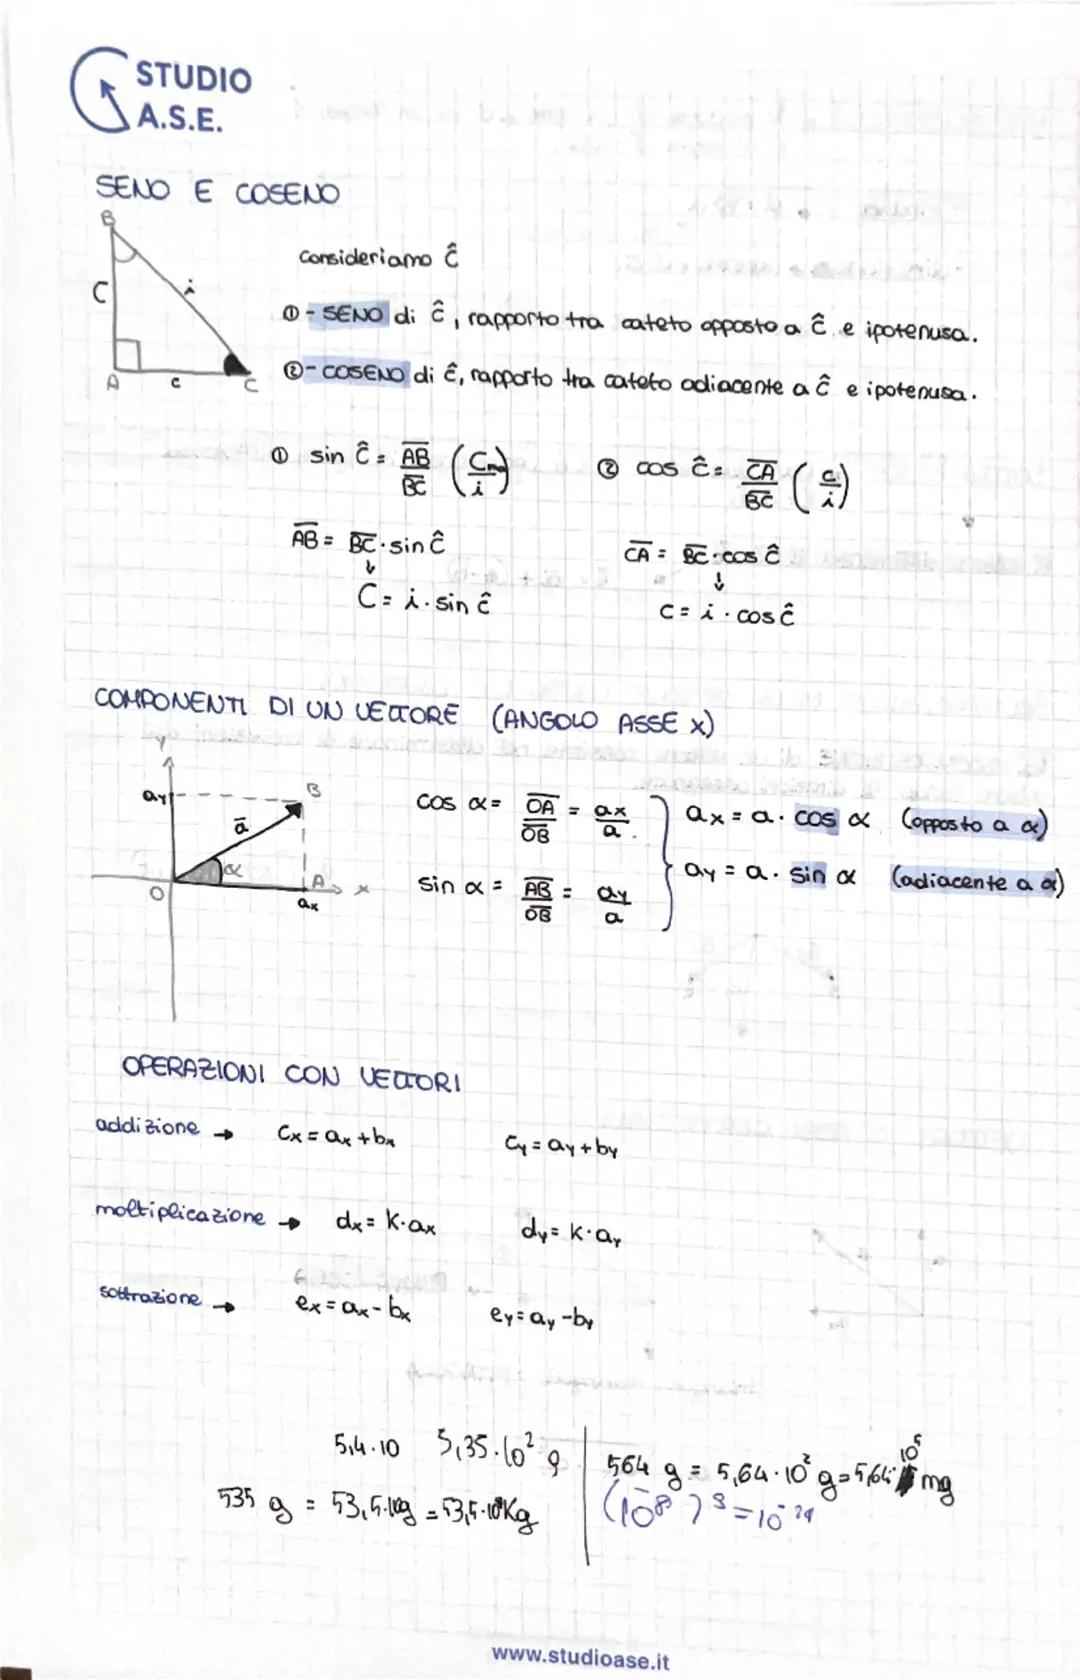 STUDIO
A.S.E.
SENO E COSENO
B
C
i
A
c
C
consideriamo Ĉ
① - SENO di Ĉ, rapporto tra cateto opposto a Ĉ e ipotenusa.
② - COSENO di Ĉ, rapporto tra cateto adiacente a Ĉ e ipotenusa.
① sin Ĉ = AB/BC (C/i)
② cos Ĉ = CA/BC (c/i)
AB = BC · sin Ĉ
CA = BC · cos Ĉ
↓
↓
C = i · sin Ĉ
c = i · cos Ĉ
COMPONENTI DI UN VETTORE (ANGOLO ASSE X)
y
ay
B
a
α
O
A
x
ax
cos α = OA/OB = ax/a
ax = a · cos α (opposto a α)
sin α = AB/OB = ay/a
ay = a · sin α (adiacente a α)
OPERAZIONI CON VETTORI
addizione → Cx = ax + bx Cy = ay + by
moltiplicazione → dx = K·ax dy = K·ay
sottrazione → ex = ax - bx ey = ay - by
5,4·10 5,35·10² g
535 g = 53,5·10g = 53,5·10 Kg
564 g = 5,64·10² g = 5,64·10⁵ mg
www.studioase.it